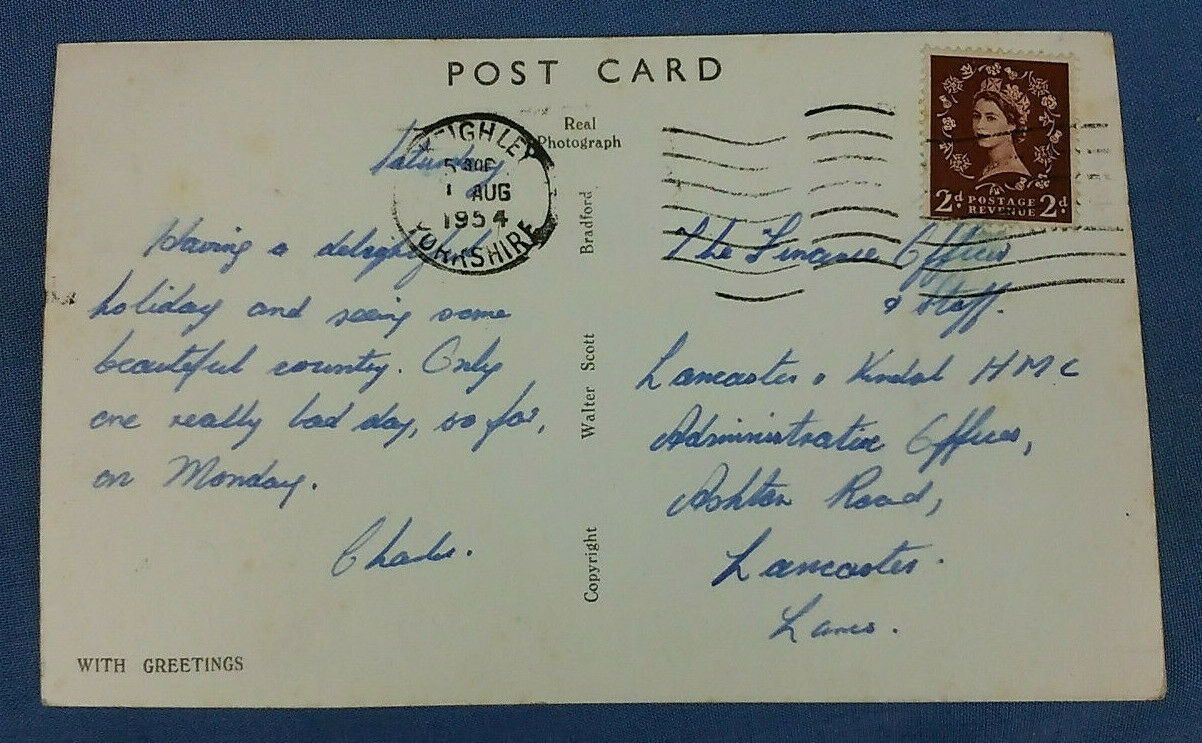 POST CARD
Real
Photograph
KEIGHLEY
1 AUG
1954
YORKSHIRE
2d POSTAGE REVENUE 2d
Saturday.
Having a delightful
holiday and seeing some
beautiful country. Only
one really bad day, so far,
on Monday.
Charles.
WITH GREETINGS
Copyright Walter Scott Bradford
The Finance Officer
& Staff.
Lancaster & Kendal HMC
Administrative Offices,
Ashton Road,
Lancaster.
Lancs.